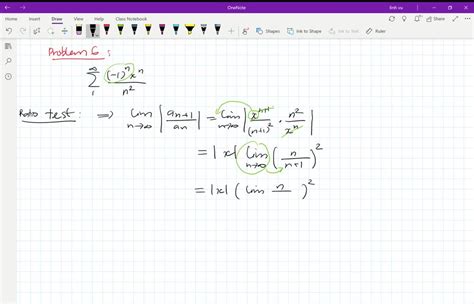 OneNote
linh vu
File Home Insert Draw View Help
Shapes Ink to Shape Ink to Text
Problem 6:
∑_1^∞ (-1)^n x^n / n^2
Ratio test: ⇒ lim_{n→∞} | a_{n+1} / a_n | = lim_{n→∞} | x^{n+1} / (n+1)^2 · n^2 / x^n |
= |x| lim_{n→∞} ( n / n+1 )^2
= |x| ( lim n / )^2